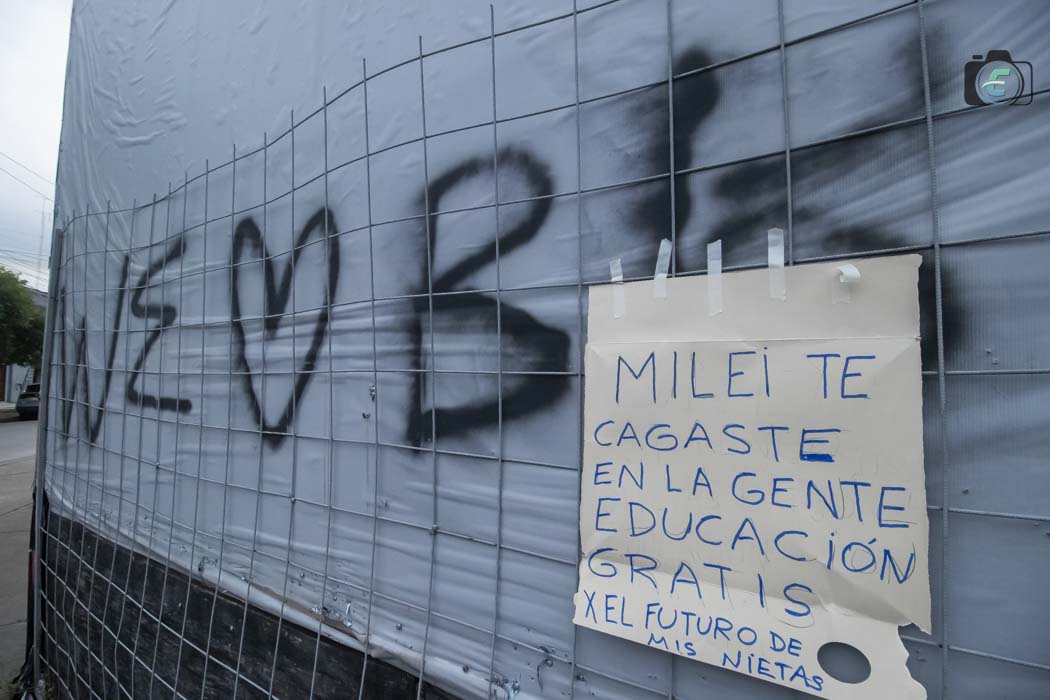 WE ♡ B
MILEI TE
CAGASTE
EN LA GENTE
EDUCACIÓN
GRATIS
X EL FUTURO DE
MIS NIETAS